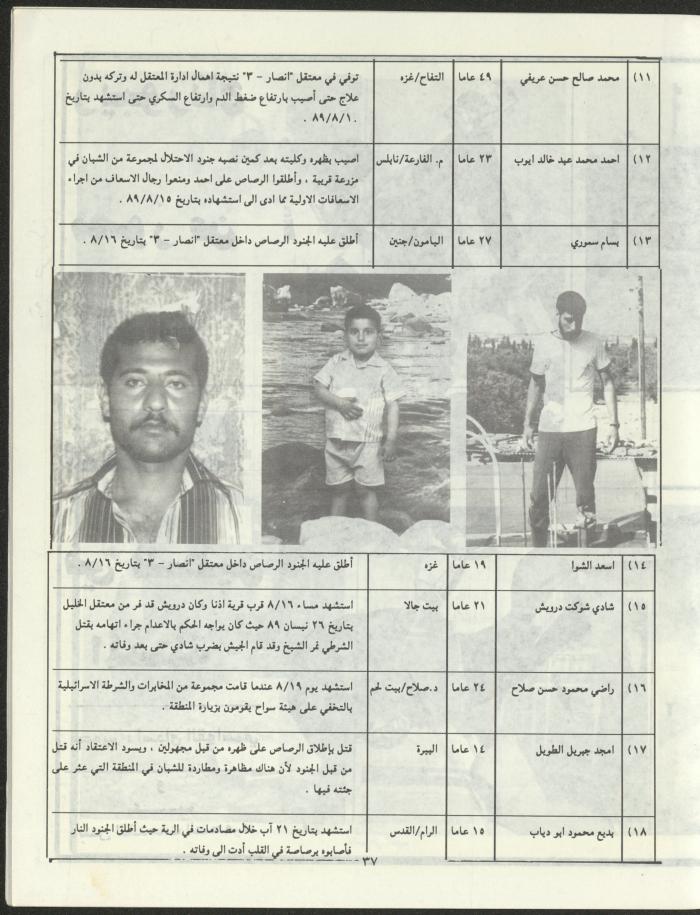 (١١ محمد صالح حسن عريفي ٤٩ عاما التفاح/غزه توفي في معتقل "انصار - ٣" نتيجة اهمال ادارة المعتقل له وتركه بدون
علاج حتى أصيب بارتفاع ضغط الدم وارتفاع السكري حتى استشهد بتاريخ
٨٩/٨/١٠ .
(١٢ احمد محمد عبد خالد ايوب ٢٣ عاما م. الفارعة/نابلس اصيب بظهره وكليته بعد كمين نصبه جنود الاحتلال لمجموعة من الشبان في
مزرعة قريبة ، وأطلقوا الرصاص على احمد ومنعوا رجال الاسعاف من اجراء
الاسعافات الاولية مما ادى الى استشهاده بتاريخ ٨٩/٨/١٥ .
(١٣ بسام سموري ٢٧ عاما اليامون/جنين أطلق عليه الجنود الرصاص داخل معتقل "انصار - ٣" بتاريخ ٨/١٦ .
(١٤ اسعد الشوا ١٩ عاما غزه أطلق عليه الجنود الرصاص داخل معتقل "انصار - ٣" بتاريخ ٨/١٦ .
(١٥ شادي شوكت درويش ٢١ عاما بيت جالا استشهد مساء ٨/١٦ قرب قرية اذنا وكان درويش قد فر من معتقل الخليل
بتاريخ ٢٦ نيسان ٨٩ حيث كان يواجه الحكم بالاعدام جراء اتهامه بقتل
الشرطي نمر الشيخ وقد قام الجيش بضرب شادي حتى بعد وفاته .
(١٦ راضي محمود حسن صلاح ٢٤ عاما د.صلاح/بيت لحم استشهد يوم ٨/١٩ عندما قامت مجموعة من المخابرات والشرطة الاسرائيلية
بالتخفي على هيئة سواح يقومون بزيارة المنطقة .
(١٧ امجد جبريل الطويل ١٤ عاما البيرة قتل بإطلاق الرصاص على ظهره من قبل مجهولين ، ويسود الاعتقاد أنه قتل
من قبل الجنود لأن هناك مظاهرة ومطاردة للشبان في المنطقة التي عثر على
جثته فيها .
(١٨ بديع محمود ابو دياب ١٥ عاما الرام/القدس استشهد بتاريخ ٢١ آب خلال مصادمات في الرية حيث أطلق الجنود النار
فأصابوه برصاصة في القلب أدت الى وفاته .
٣٧